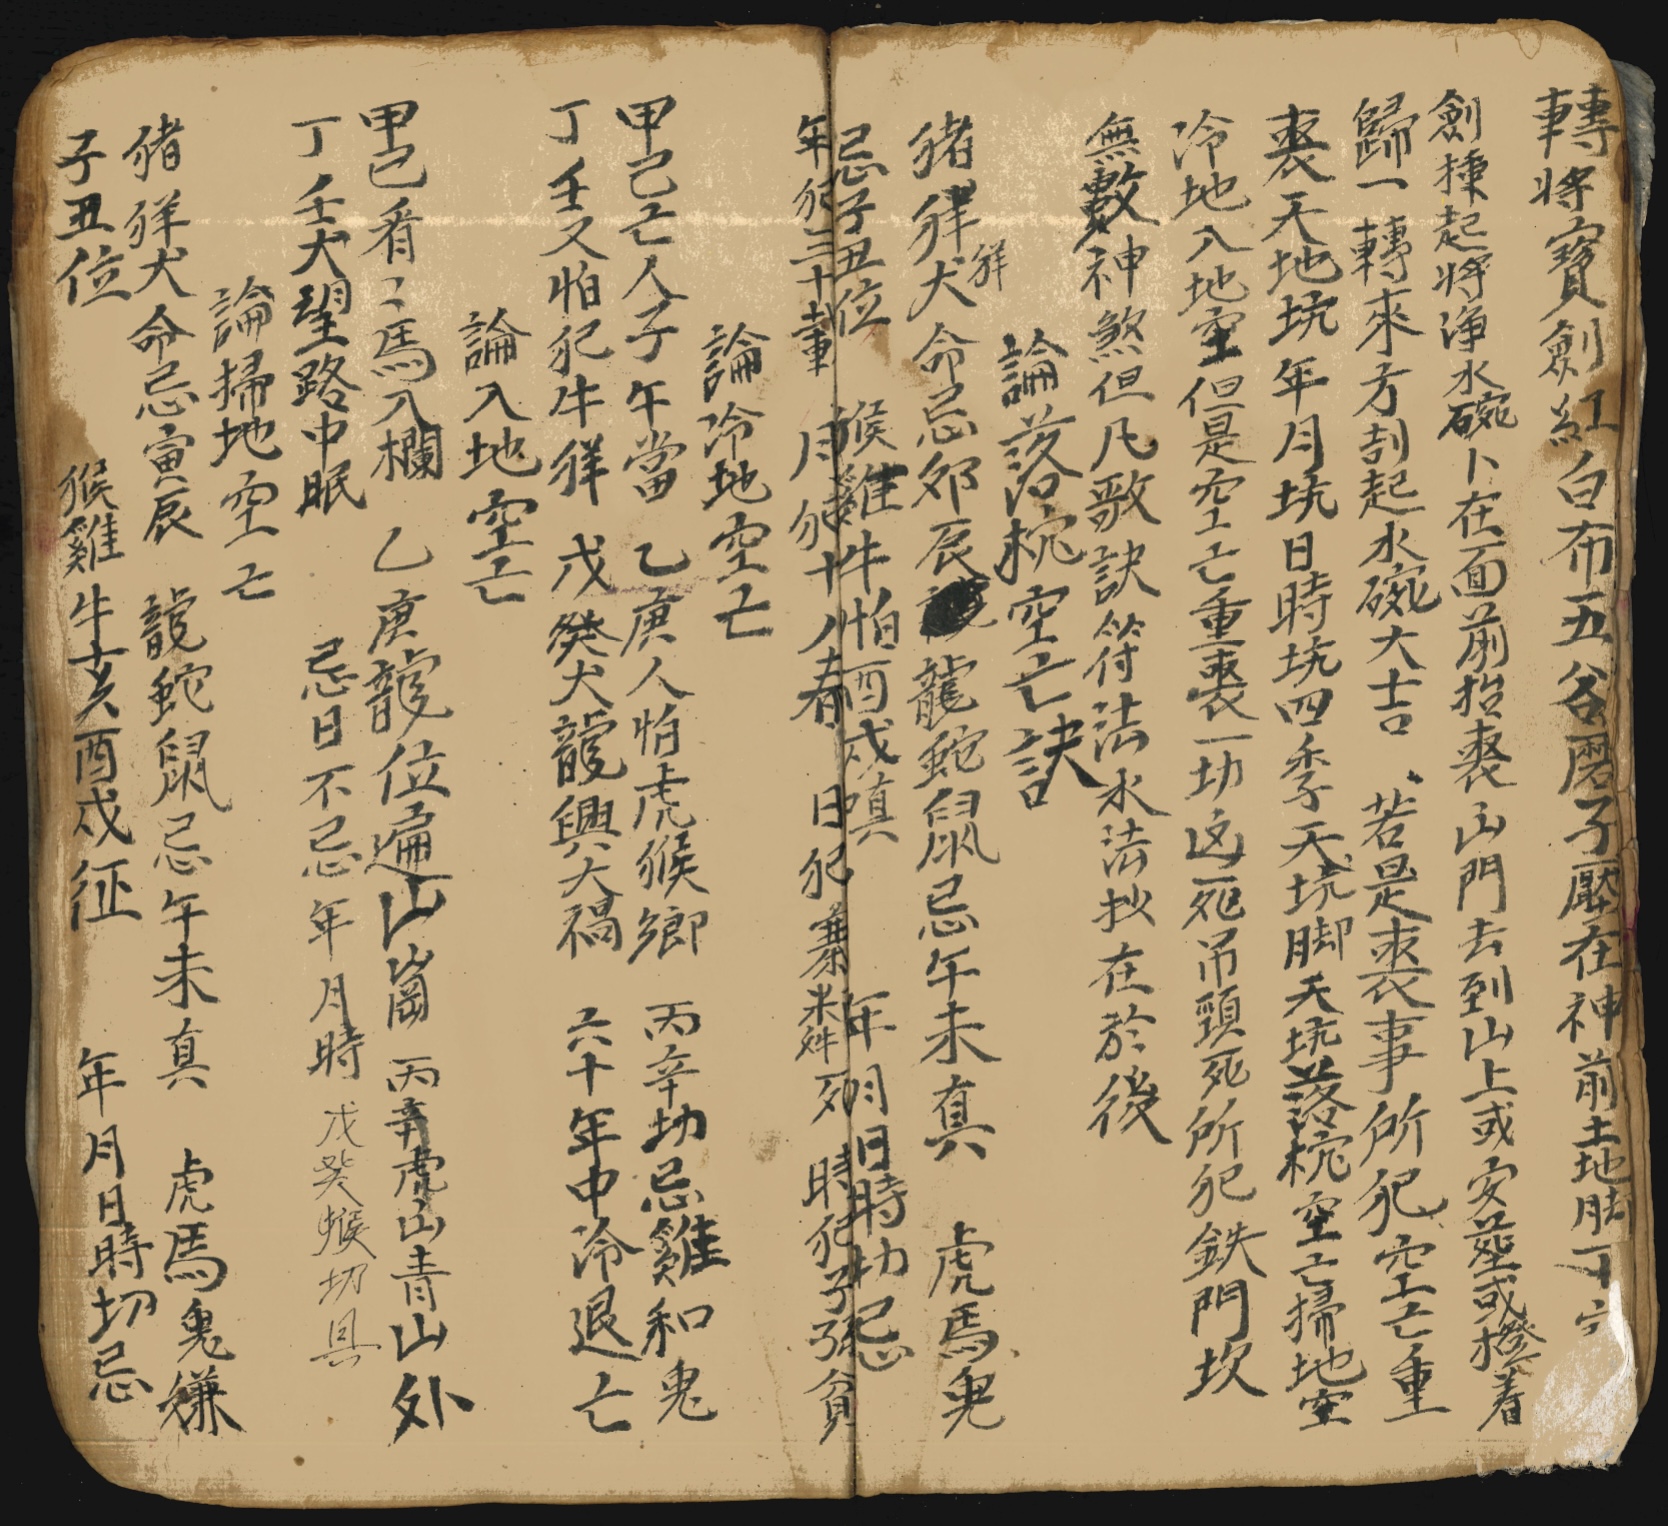 轉將寶劍紅白布五谷磨子壓在神前土地脚下
劍捶起將淨水碗卜在面前抬喪山門去到山上或安葬或撜着
歸一轉來方刮起水碗大吉、若是喪事所犯空亡重
喪天地坑年月坑日時坑四季天坑脚天坑落枕空亡掃地空
冷地入地空但是空亡重喪一切凶死吊頸死所犯鉄門坎
無數神煞但凡歌訣符法水法抄在於後
論落枕空亡訣
猪羊犬命忌卯辰龍蛇鼠忌午未真 虎馬兔
忌子丑位 猴雞牛怕酉戌真 年月日時切忌
年犯三十輩 月犯十八春 日犯 死 時犯子孫貧
論冷地空亡
甲己亡人子午當 乙庚人怕虎猴鄉 丙辛切忌雞和鬼
丁壬又怕犯牛羊 戊癸犬龍興大禍 六十年中冷退亡
論入地空亡
甲己看〻馬入欄 乙庚龍位遍山崗 丙辛虎山青山外
丁壬犬望路中眠 忌日不忌年月時 戊癸猴切具
論掃地空亡
猪羊犬命忌寅辰 龍蛇鼠忌午未真 虎馬鬼嫌
子丑位 猴雞牛亥酉戌征 年月日時切忌